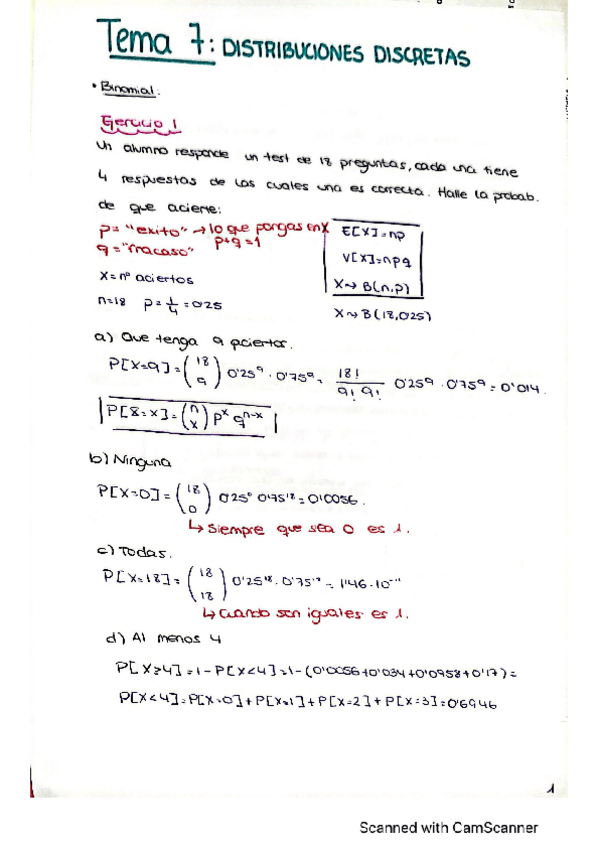 Tema 7: DISTRIBUCIONES DISCRETAS
• Binomial:
Ejercicio 1
Un alumno responde un test de 18 preguntas, cada una tiene
4 respuestas de las cuales una es correcta. Halle la probab.
de que acierte:
p = "exito" → lo que pongas en X
q = "fracaso" p+q=1
X = nº aciertos
n=18 p = 1/4 = 0'25
E[X]=np
V[X]=npq
X ~> B(n,p)
X ~> B(18,0'25)
a) Que tenga 9 aciertos.
P[X=9] = (18 9) 0'25⁹ · 0'75⁹ = 18!/9! 9! 0'25⁹ · 0'75⁹ = 0'014.
P[X=x] = (n x) pˣ qⁿ⁻ˣ
b) Ninguna
P[X=0] = (18 0) 0'25⁰ 0'75¹⁸ = 0'0056.
↳ Siempre que sea 0 es 1.
c) Todas.
P[X=18] = (18 18) 0'25¹⁸ · 0'75⁰ = 1'46·10⁻¹¹
↳ Cuando son iguales es 1.
d) Al menos 4
P[X≥4] = 1 - P[X<4] = 1 - (0'0056+0'034+0'0958+0'17) =
P[X<4] = P[X=0] + P[X=1] + P[X=2] + P[X=3] = 0'6946
1
Scanned with CamScanner